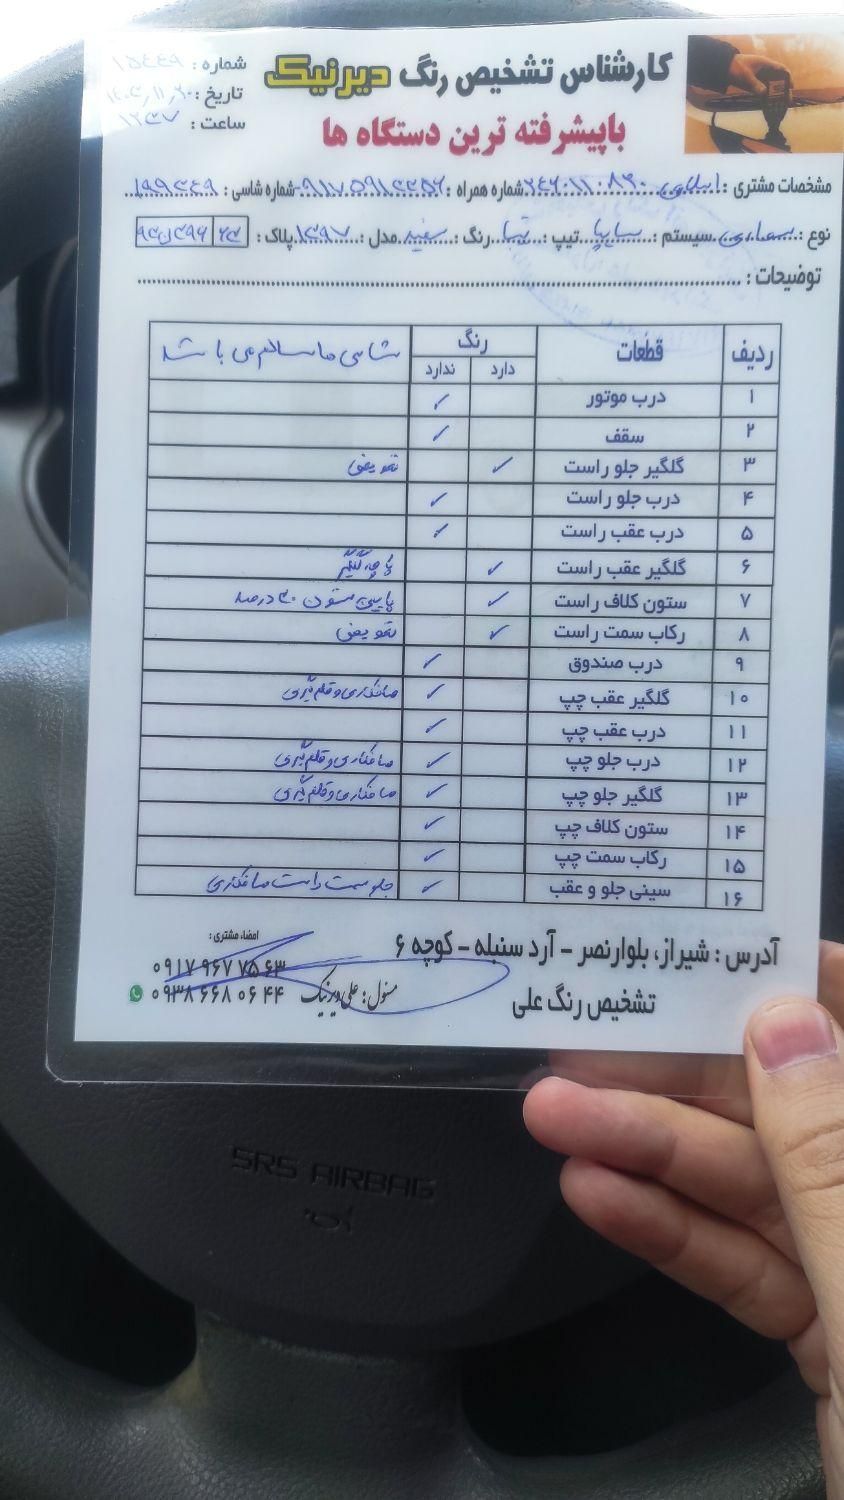 کارشناس تشخیص رنگ دیرنیک
باپیشرفته ترین دستگاه ها
شماره : ۱۵۴۴۹
تاریخ : ۱۴۰۳/۱۱/۲۰
ساعت : ۱۲۳۷
مشخصات مشتری : شماره همراه : شماره شاسی : ۱۹۹۳۴۹
نوع : سواری سیستم : سایپا تیپ : تیبا رنگ : سفید مدل : ۱۳۹۷ پلاک :
توضیحات :
ردیف قطعات رنگ شاسی ها سالم می باشد
دارد ندارد
۱ درب موتور ✓
۲ سقف ✓
۳ گلگیر جلو راست ✓ تعویض
۴ درب جلو راست ✓
۵ درب عقب راست ✓
۶ گلگیر عقب راست ✓ پاچه گلگیر
۷ ستون کلاف راست ✓ پایین ستون ۳۰ درصد
۸ رکاب سمت راست ✓ تعویض
۹ درب صندوق ✓
۱۰ گلگیر عقب چپ ✓ صافکاری و قلم گیری
۱۱ درب عقب چپ ✓
۱۲ درب جلو چپ ✓ صافکاری و قلم گیری
۱۳ گلگیر جلو چپ ✓ صافکاری و قلم گیری
۱۴ ستون کلاف چپ ✓
۱۵ رکاب سمت چپ ✓
۱۶ سینی جلو و عقب ✓ جلو سمت راست صافکاری
آدرس : شیراز، بلوارنصر – آرد سنبله – کوچه ۶
تشخیص رنگ علی
امضاء مشتری :
۰۹۱۷ ۹۶۷ ۷۵ ۶۳
مسئول : علی دیرنیک ۰۹۳۸ ۶۶۸ ۰۶ ۴۴
SRS AIRBAG